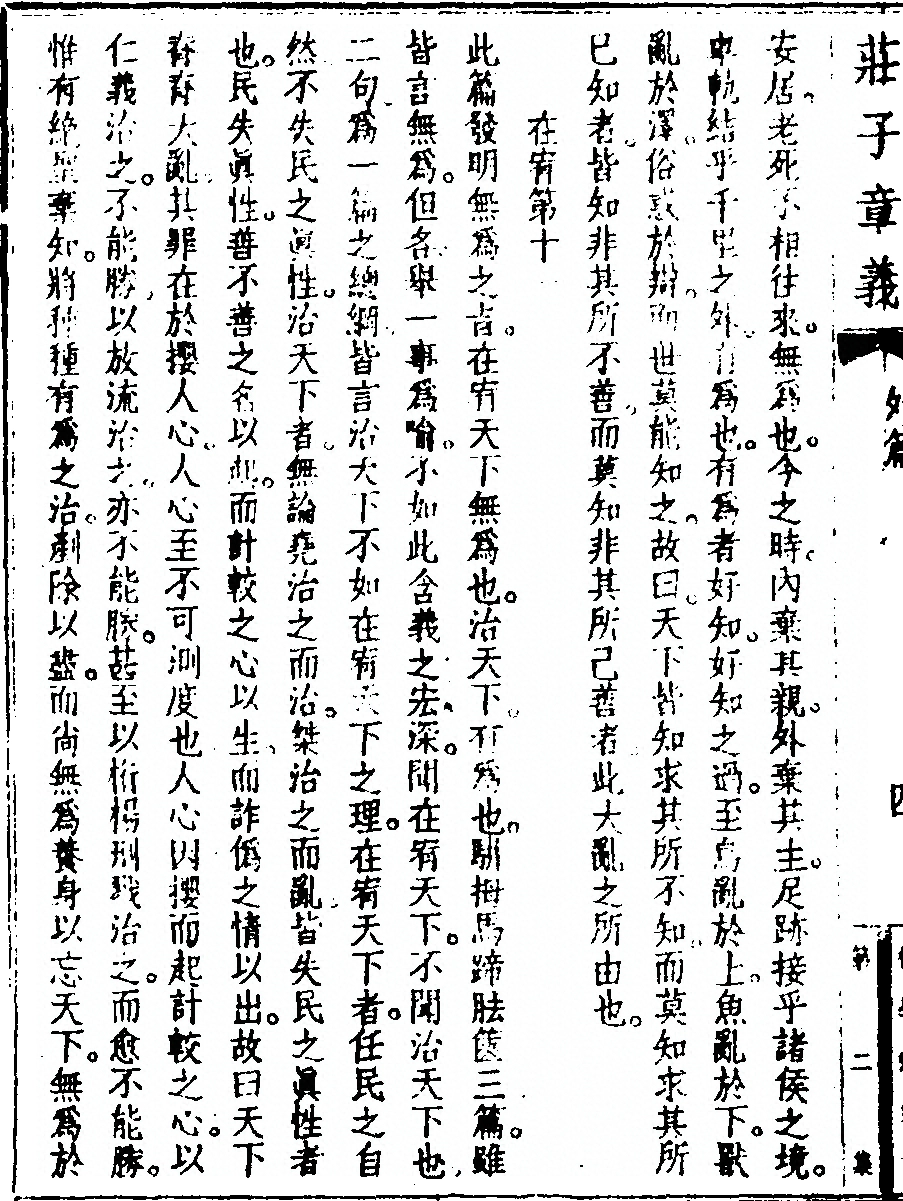 莊子章義 外篇 四 第二集
安居老死不相往來。無爲也。今之時。內棄其親。外棄其主。足跡接乎諸侯之境。
車軌結乎千里之外。有爲也。有爲者好知。好知之過。至鳥亂於上。魚亂於下。獸
亂於澤。俗惑於辯。而世莫能知之。故曰。天下皆知求其所不知。而莫知求其所
已知者。皆知非其所不善。而莫知非其所已善者。此大亂之所由也。
在宥第十
此篇發明無爲之旨。在宥天下無爲也。治天下。有爲也。駢拇馬蹄胠篋三篇。雖
皆言無爲。但各舉一事爲喻。不如此含義之宏深。聞在宥天下。不聞治天下也。
二句。爲一篇之總綱。皆言治天下不如在宥天下之理。在宥天下者。任民之自
然不失民之眞性。治天下者。無論堯治之而治。桀治之而亂。皆失民之眞性者
也。民失眞性。善不善之名以起。而計較之心以生。而詐僞之情以出。故曰天下
脊脊大亂。其罪在於攖人心。人心至不可測度也人心因攖而起計較之心。以
仁義治之。不能勝。以放流治之。亦不能勝。甚至以桁楊刑戮治之。而愈不能勝。
惟有絕聖棄知。將種種有爲之治。剷除以盡。而尚無爲養身以忘天下。無爲於